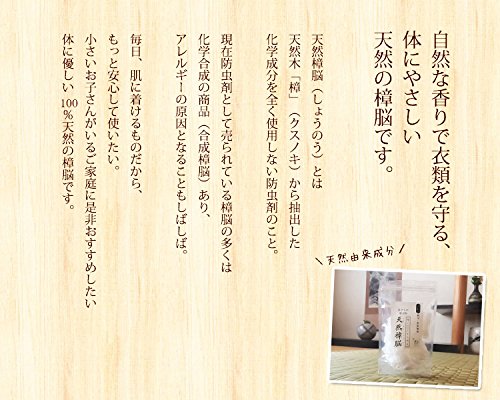 自然な香りで衣類を守る、
体にやさしい
天然の樟脳です。
天然樟脳（しょうのう）とは
天然木「樟」（クスノキ）から抽出した
化学成分を全く使用しない防虫剤のこと。
現在防虫剤として売られている樟脳の多くは
化学合成の商品（合成樟脳）あり、
アレルギーの原因となることもしばしば。
毎日、肌に着けるものだから、
もっと安心して使いたい。
小さいお子さんがいるご家庭に是非おすすめしたい
体に優しい100％天然の樟脳です。
＼天然由来成分／
天然樟脳